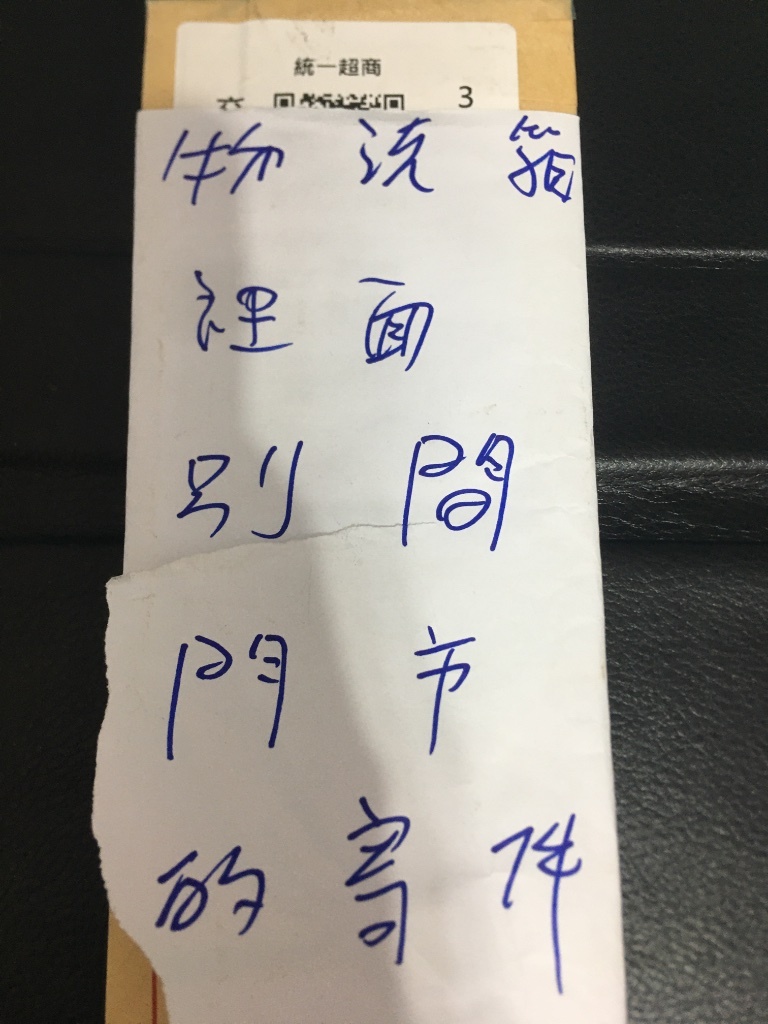 統一超商
交 3
物流箱
裡面
別間
門市
的寄件